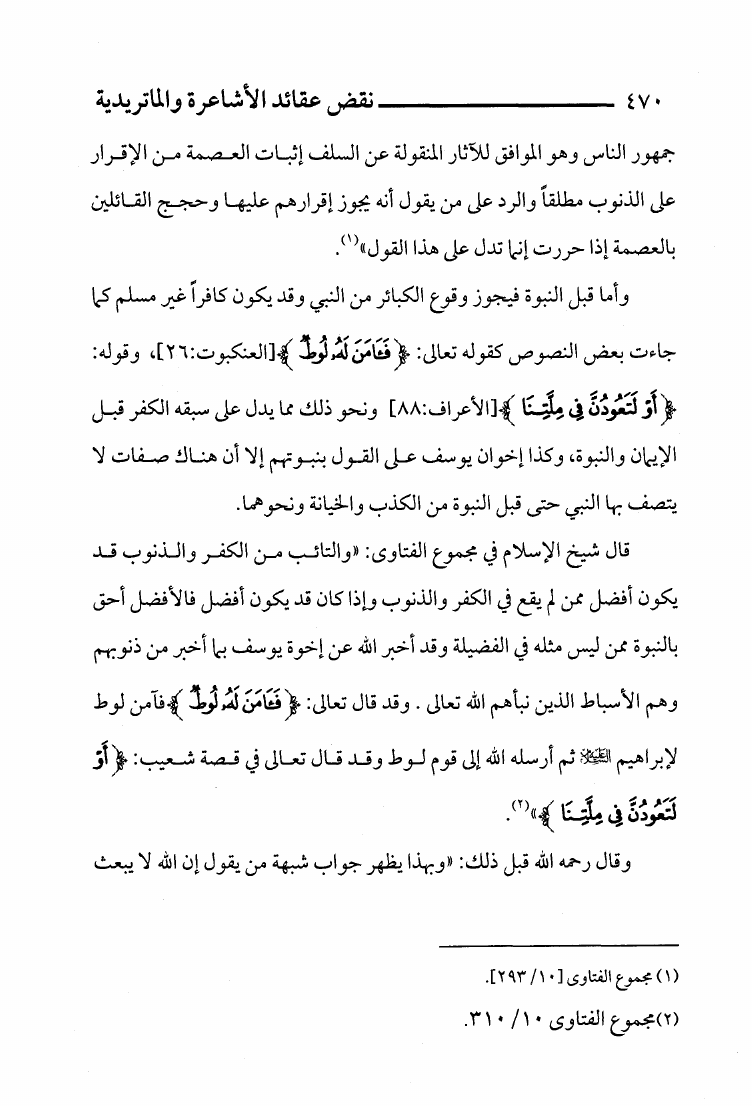 ٤٧٠ نقض عقائد الأشاعرة والماتريدية
جمهور الناس وهو الموافق للآثار المنقولة عن السلف إثبات العصمة من الإقرار
على الذنوب مطلقاً والرد على من يقول أنه يجوز إقرارهم عليها وحجج القائلين
بالعصمة إذا حررت إنما تدل على هذا القول»(١).
وأما قبل النبوة فيجوز وقوع الكبائر من النبي وقد يكون كافراً غير مسلم كما
جاءت بعض النصوص كقوله تعالى: ﴿ فَـَٔامَنَ لَهُۥ لُوطٌ ﴾[العنكبوت:٢٦]، وقوله:
﴿ أَوْ لَتَعُودُنَّ فِى مِلَّتِنَا ﴾[الأعراف:٨٨] ونحو ذلك مما يدل على سبقه الكفر قبل
الإيمان والنبوة، وكذا إخوان يوسف على القول بنبوتهم إلا أن هناك صفات لا
يتصف بها النبي حتى قبل النبوة من الكذب والخيانة ونحوهما.
قال شيخ الإسلام في مجموع الفتاوى: «والتائب من الكفر والذنوب قد
يكون أفضل ممن لم يقع في الكفر والذنوب وإذا كان قد يكون أفضل فالأفضل أحق
بالنبوة ممن ليس مثله في الفضيلة وقد أخبر الله عن إخوة يوسف بما أخبر من ذنوبهم
وهم الأسباط الذين نبأهم الله تعالى . وقد قال تعالى: ﴿ فَـَٔامَنَ لَهُۥ لُوطٌ ﴾فآمن لوط
لإبراهيم عليه السلام ثم أرسله الله إلى قوم لوط وقد قال تعالى في قصة شعيب: ﴿ أَوْ
لَتَعُودُنَّ فِى مِلَّتِنَا ﴾»(٢).
وقال رحمه الله قبل ذلك: «وبهذا يظهر جواب شبهة من يقول إن الله لا يبعث
(١) مجموع الفتاوى [١٠/ ٢٩٣].
(٢)مجموع الفتاوى ١٠/ ٣١٠.